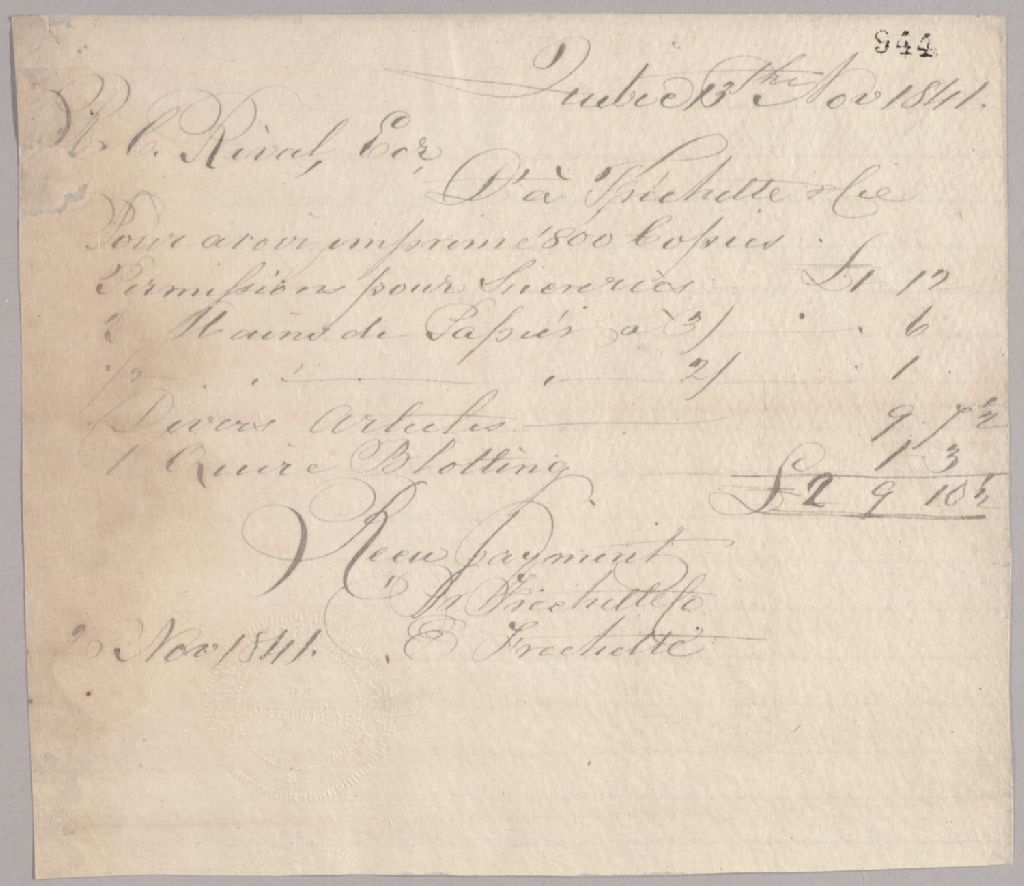 944
Quebec 13th Nov 1841.
R. C. Rival, Ecr,
Dr à Fréchette & Cie
Pour avoir imprimé 800 Copies
Permissions pour Sucreries £1 12
2 Mains de Papier à 3/ 6
1/2 " " 2/ 1
Divers Articles 9 7½
1 Quire Blotting 1 3
£2 9 10½
Recu payment
Pr Frechette & Co
2 Nov 1841. E Frechette